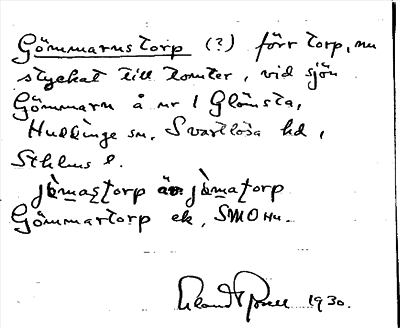 Gömmarnstorp (?) förr torp, nu
styckat till tomter, vid sjön
Gömmarn å nr 1 Glömsta,
Huddinge sn, Svartlösa hd,
Sthlms l.
jòmastorp àr jòmatorp
Gömmartorp ek, SMOHu.
1930.